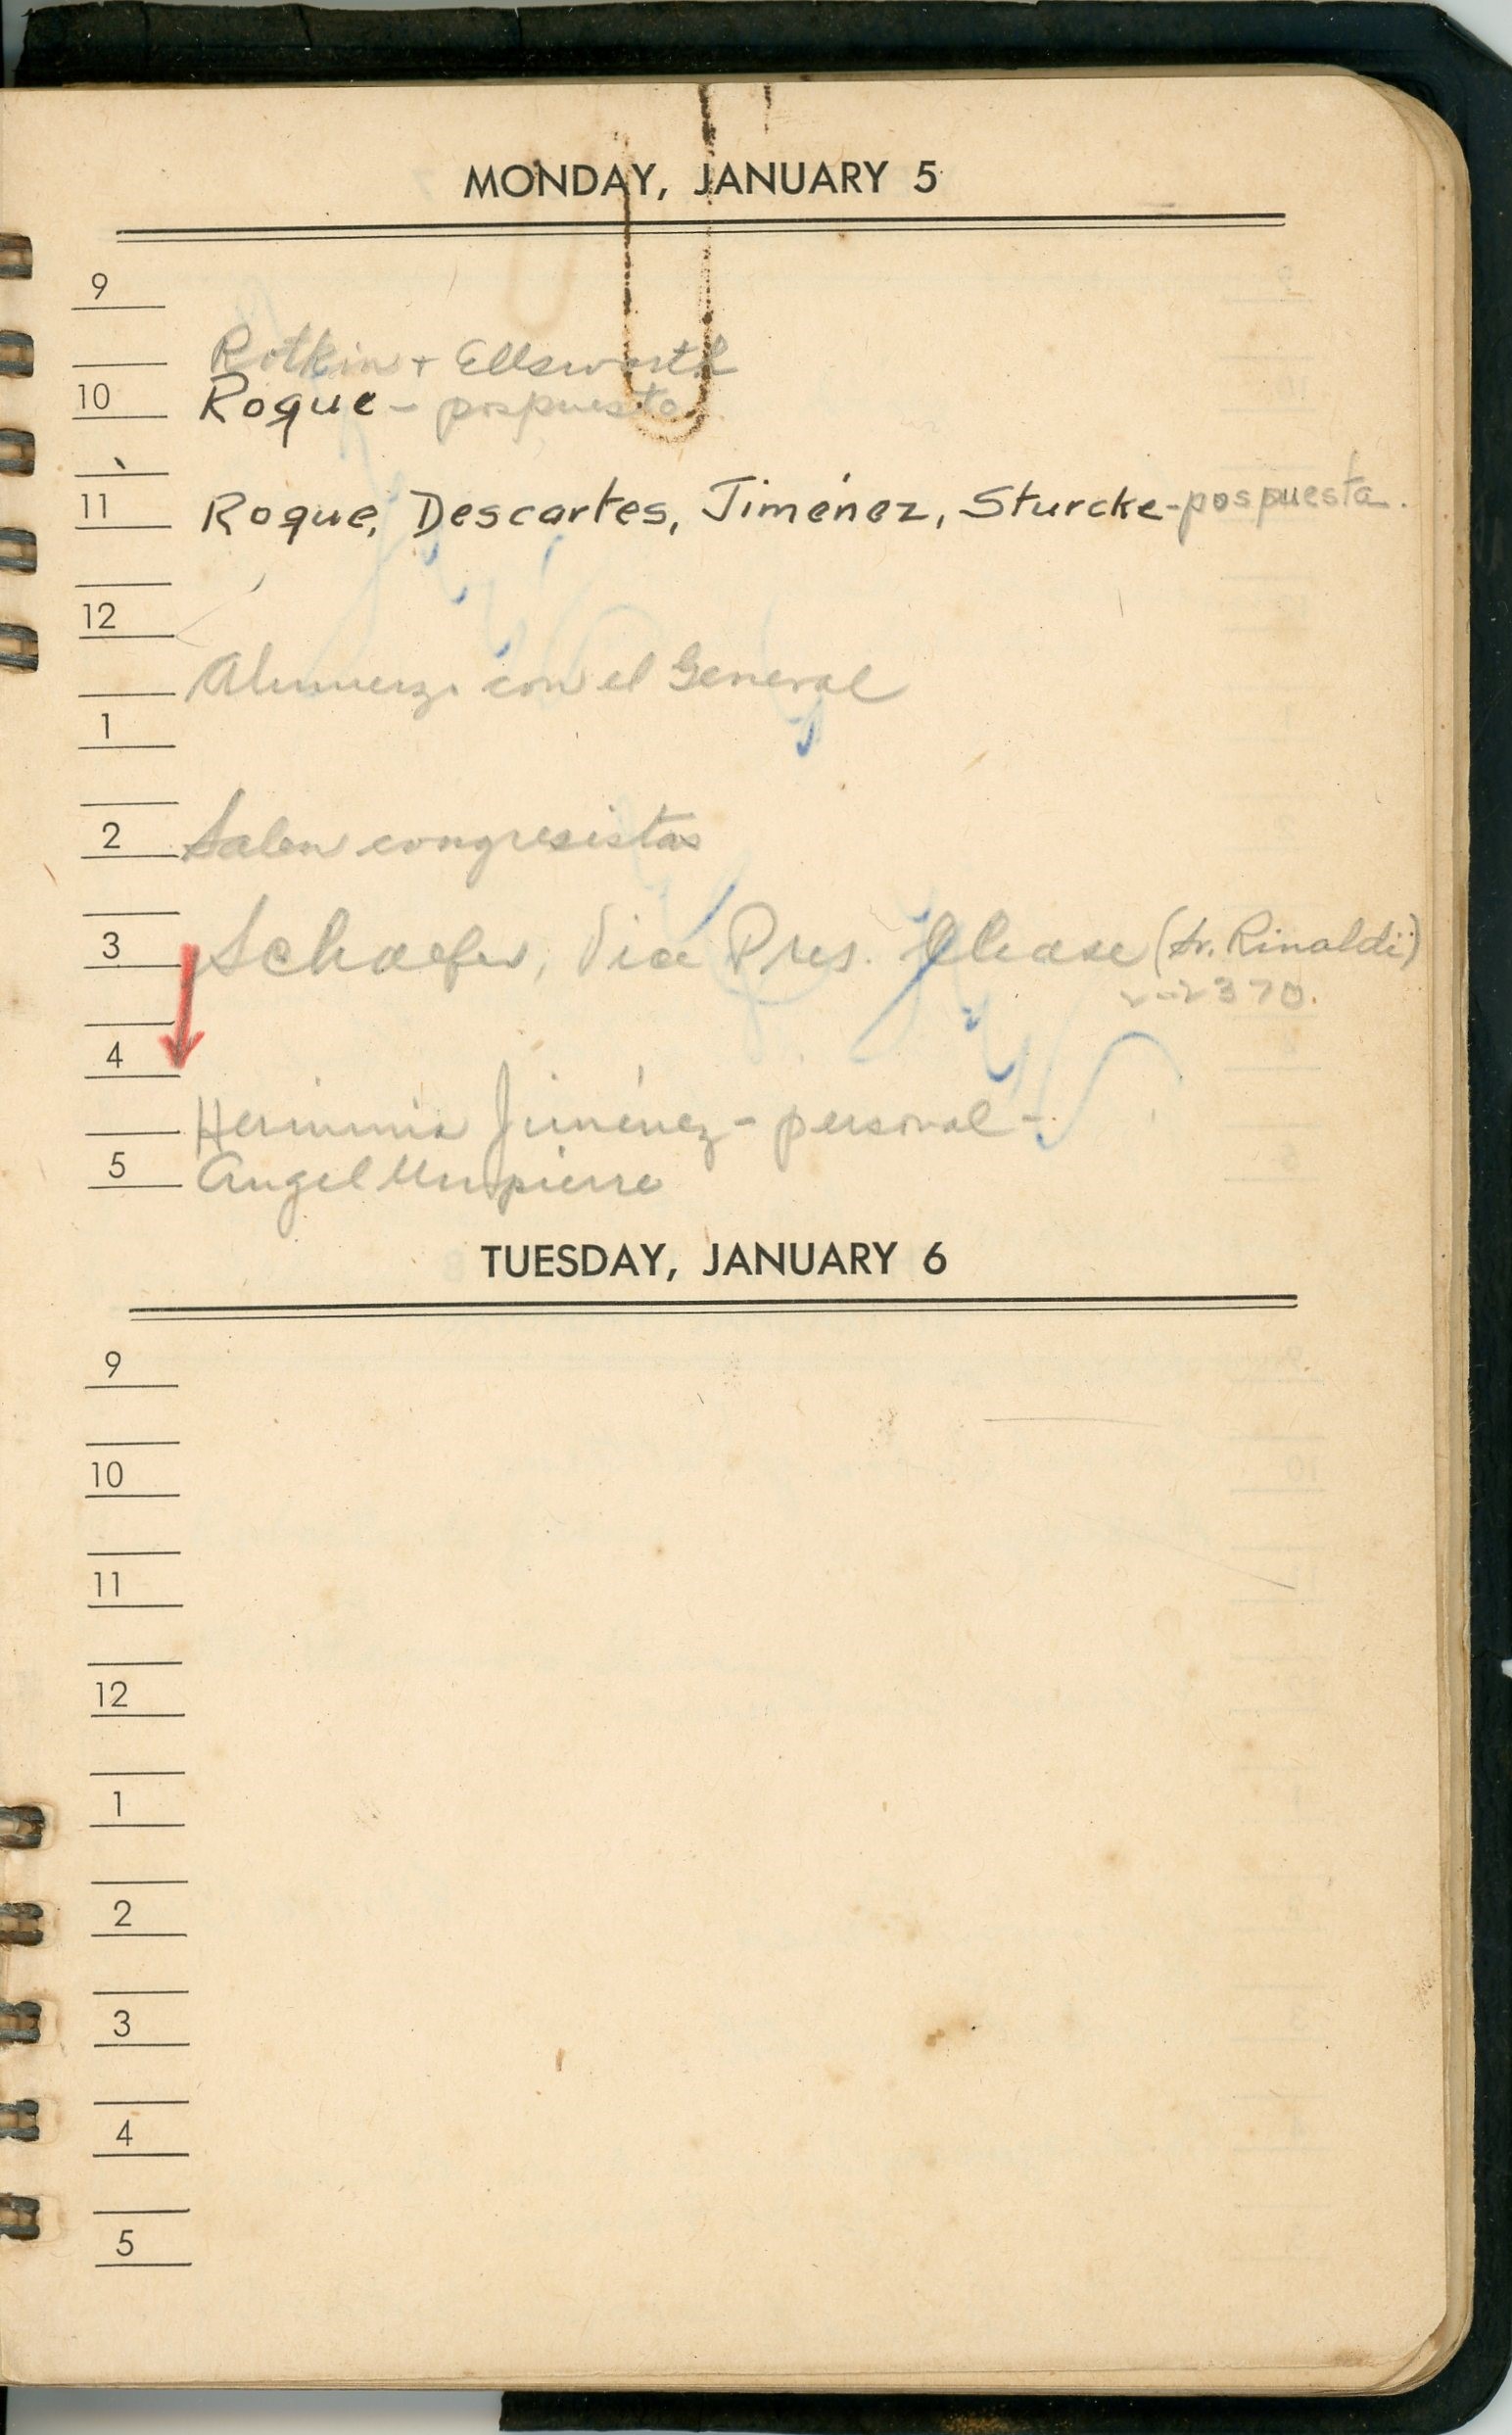 MONDAY, JANUARY 5
9
Rotkin + Ellsworth
10 Roque - pospuesta
11 Roque, Descartes, Jiménez, Sturcke - pospuesta.
12
Almuerzo con el General
1
2 Salen congresistas
3 Schaefer, Vice Pres. Chase (Sr. Rinaldi)
2-2370.
4
Herminia Jiménez - personal -
5 Angel Umpierre
TUESDAY, JANUARY 6
9
10
11
12
1
2
3
4
5